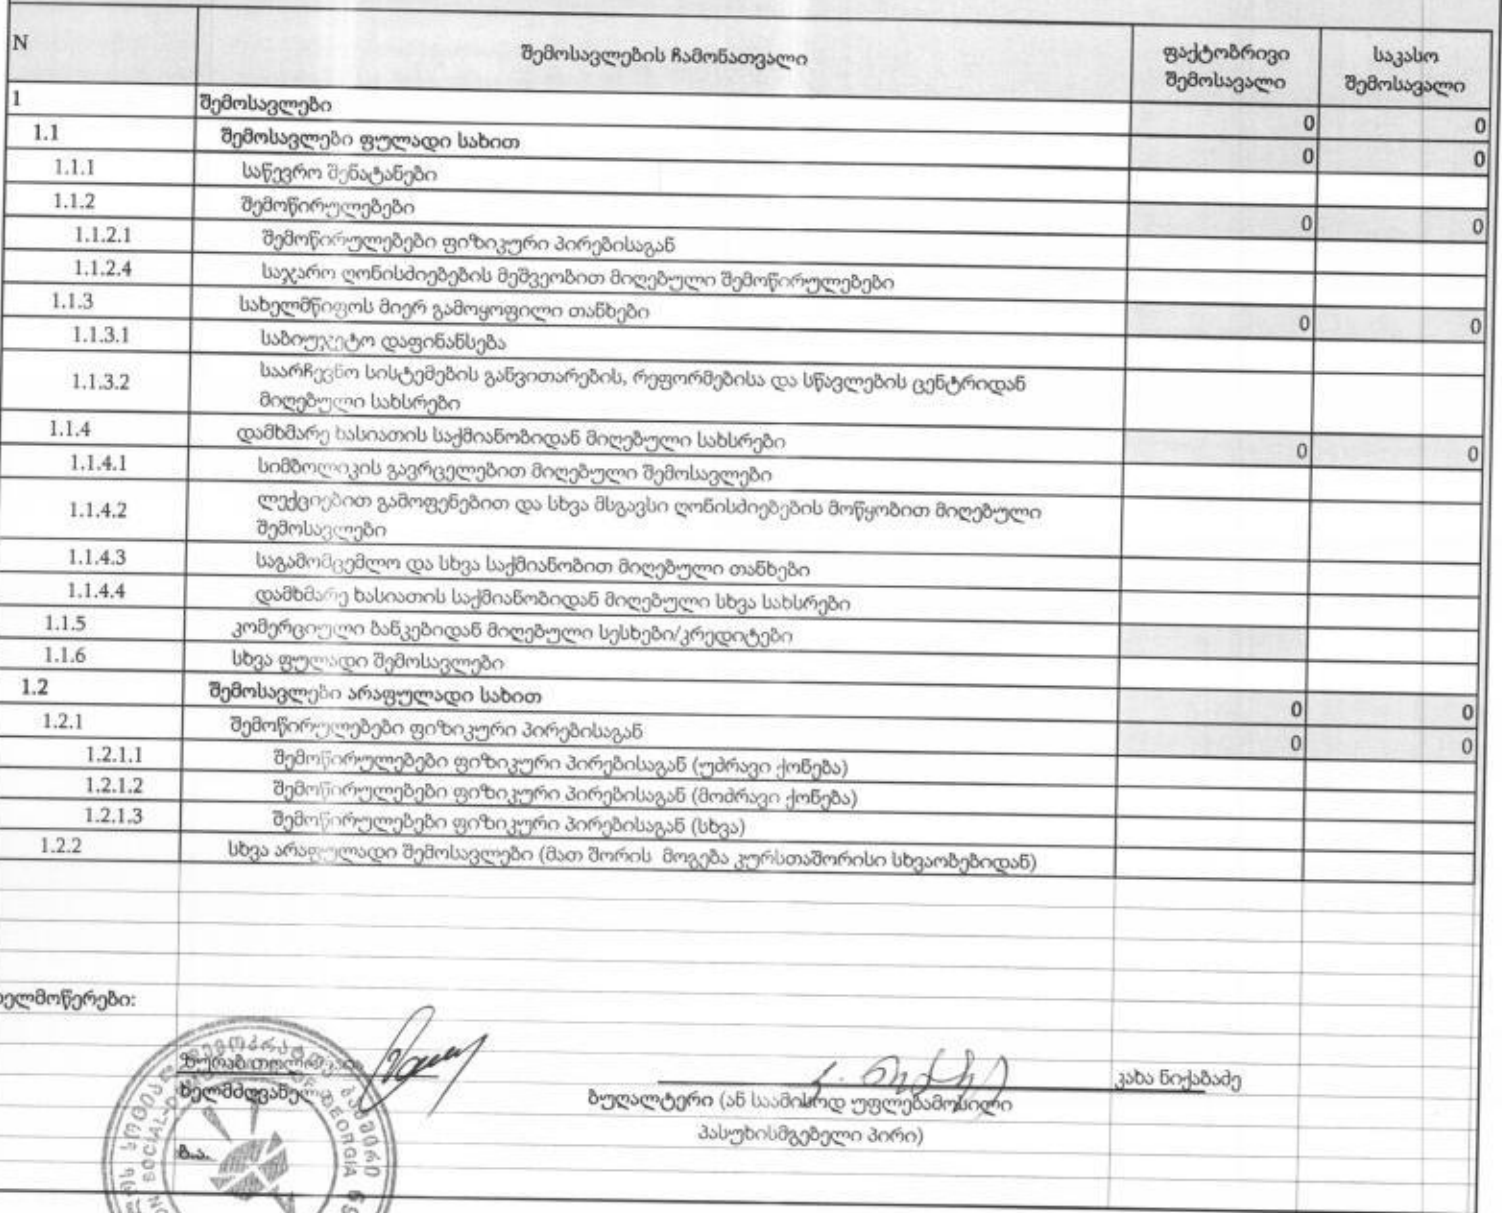 N შემოსავლების ჩამონათვალი ფაქტობრივი შემოსავალი საკასო შემოსავალი
1 შემოსავლები 0 0
1.1 შემოსავლები ფულადი სახით 0 0
1.1.1 საწევრო შენატანები
1.1.2 შემოწირულებები 0 0
1.1.2.1 შემოწირულებები ფიზიკური პირებისაგან
1.1.2.4 საჯარო ღონისძიებების მეშვეობით მიღებული შემოწირულებები
1.1.3 სახელმწიფოს მიერ გამოყოფილი თანხები 0 0
1.1.3.1 საბიუჯეტო დაფინანსება
1.1.3.2 საარჩევნო სისტემების განვითარების, რეფორმებისა და სწავლების ცენტრიდან
მიღებული სახსრები
1.1.4 დამხმარე ხასიათის საქმიანობიდან მიღებული სახსრები 0 0
1.1.4.1 სიმბოლიკის გავრცელებით მიღებული შემოსავლები
1.1.4.2 ლექციებით გამოფენებით და სხვა მსგავსი ღონისძიებების მოწყობით მიღებული
შემოსავლები
1.1.4.3 საგამომცემლო და სხვა საქმიანობით მიღებული თანხები
1.1.4.4 დამხმარე ხასიათის საქმიანობიდან მიღებული სხვა სახსრები
1.1.5 კომერციული ბანკებიდან მიღებული სესხები/კრედიტები
1.1.6 სხვა ფულადი შემოსავლები
1.2 შემოსავლები არაფულადი სახით 0 0
1.2.1 შემოწირულებები ფიზიკური პირებისაგან 0 0
1.2.1.1 შემოწირულებები ფიზიკური პირებისაგან (უძრავი ქონება)
1.2.1.2 შემოწირულებები ფიზიკური პირებისაგან (მოძრავი ქონება)
1.2.1.3 შემოწირულებები ფიზიკური პირებისაგან (სხვა)
1.2.2 სხვა არაფულადი შემოსავლები (მათ შორის მოგება კურსთაშორისი სხვაობებიდან)
ელმოწერები:
ზურაბ
კახა ნიქაბაძე
ხელმძღვანელი
ბუღალტერი (ან საამისოდ უფლებამოსილი
პასუხისმგებელი პირი)
ბ.ა.
SOCIAL-D OF GEORGIA